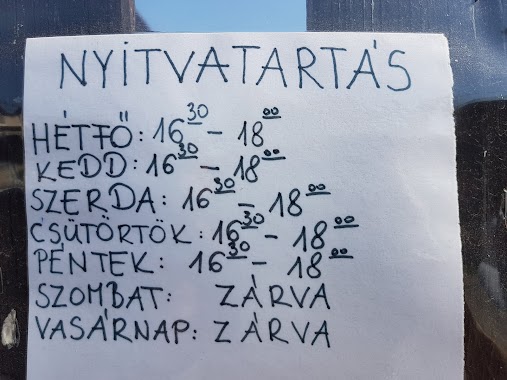 NYITVATARTÁS
HÉTFŐ: 16³⁰ – 18⁰⁰
KEDD: 16³⁰ – 18⁰⁰
SZERDA: 16³⁰ – 18⁰⁰
CSÜTÖRTÖK: 16³⁰ – 18⁰⁰
PÉNTEK: 16³⁰ – 18⁰⁰
SZOMBAT: ZÁRVA
VASÁRNAP: ZÁRVA